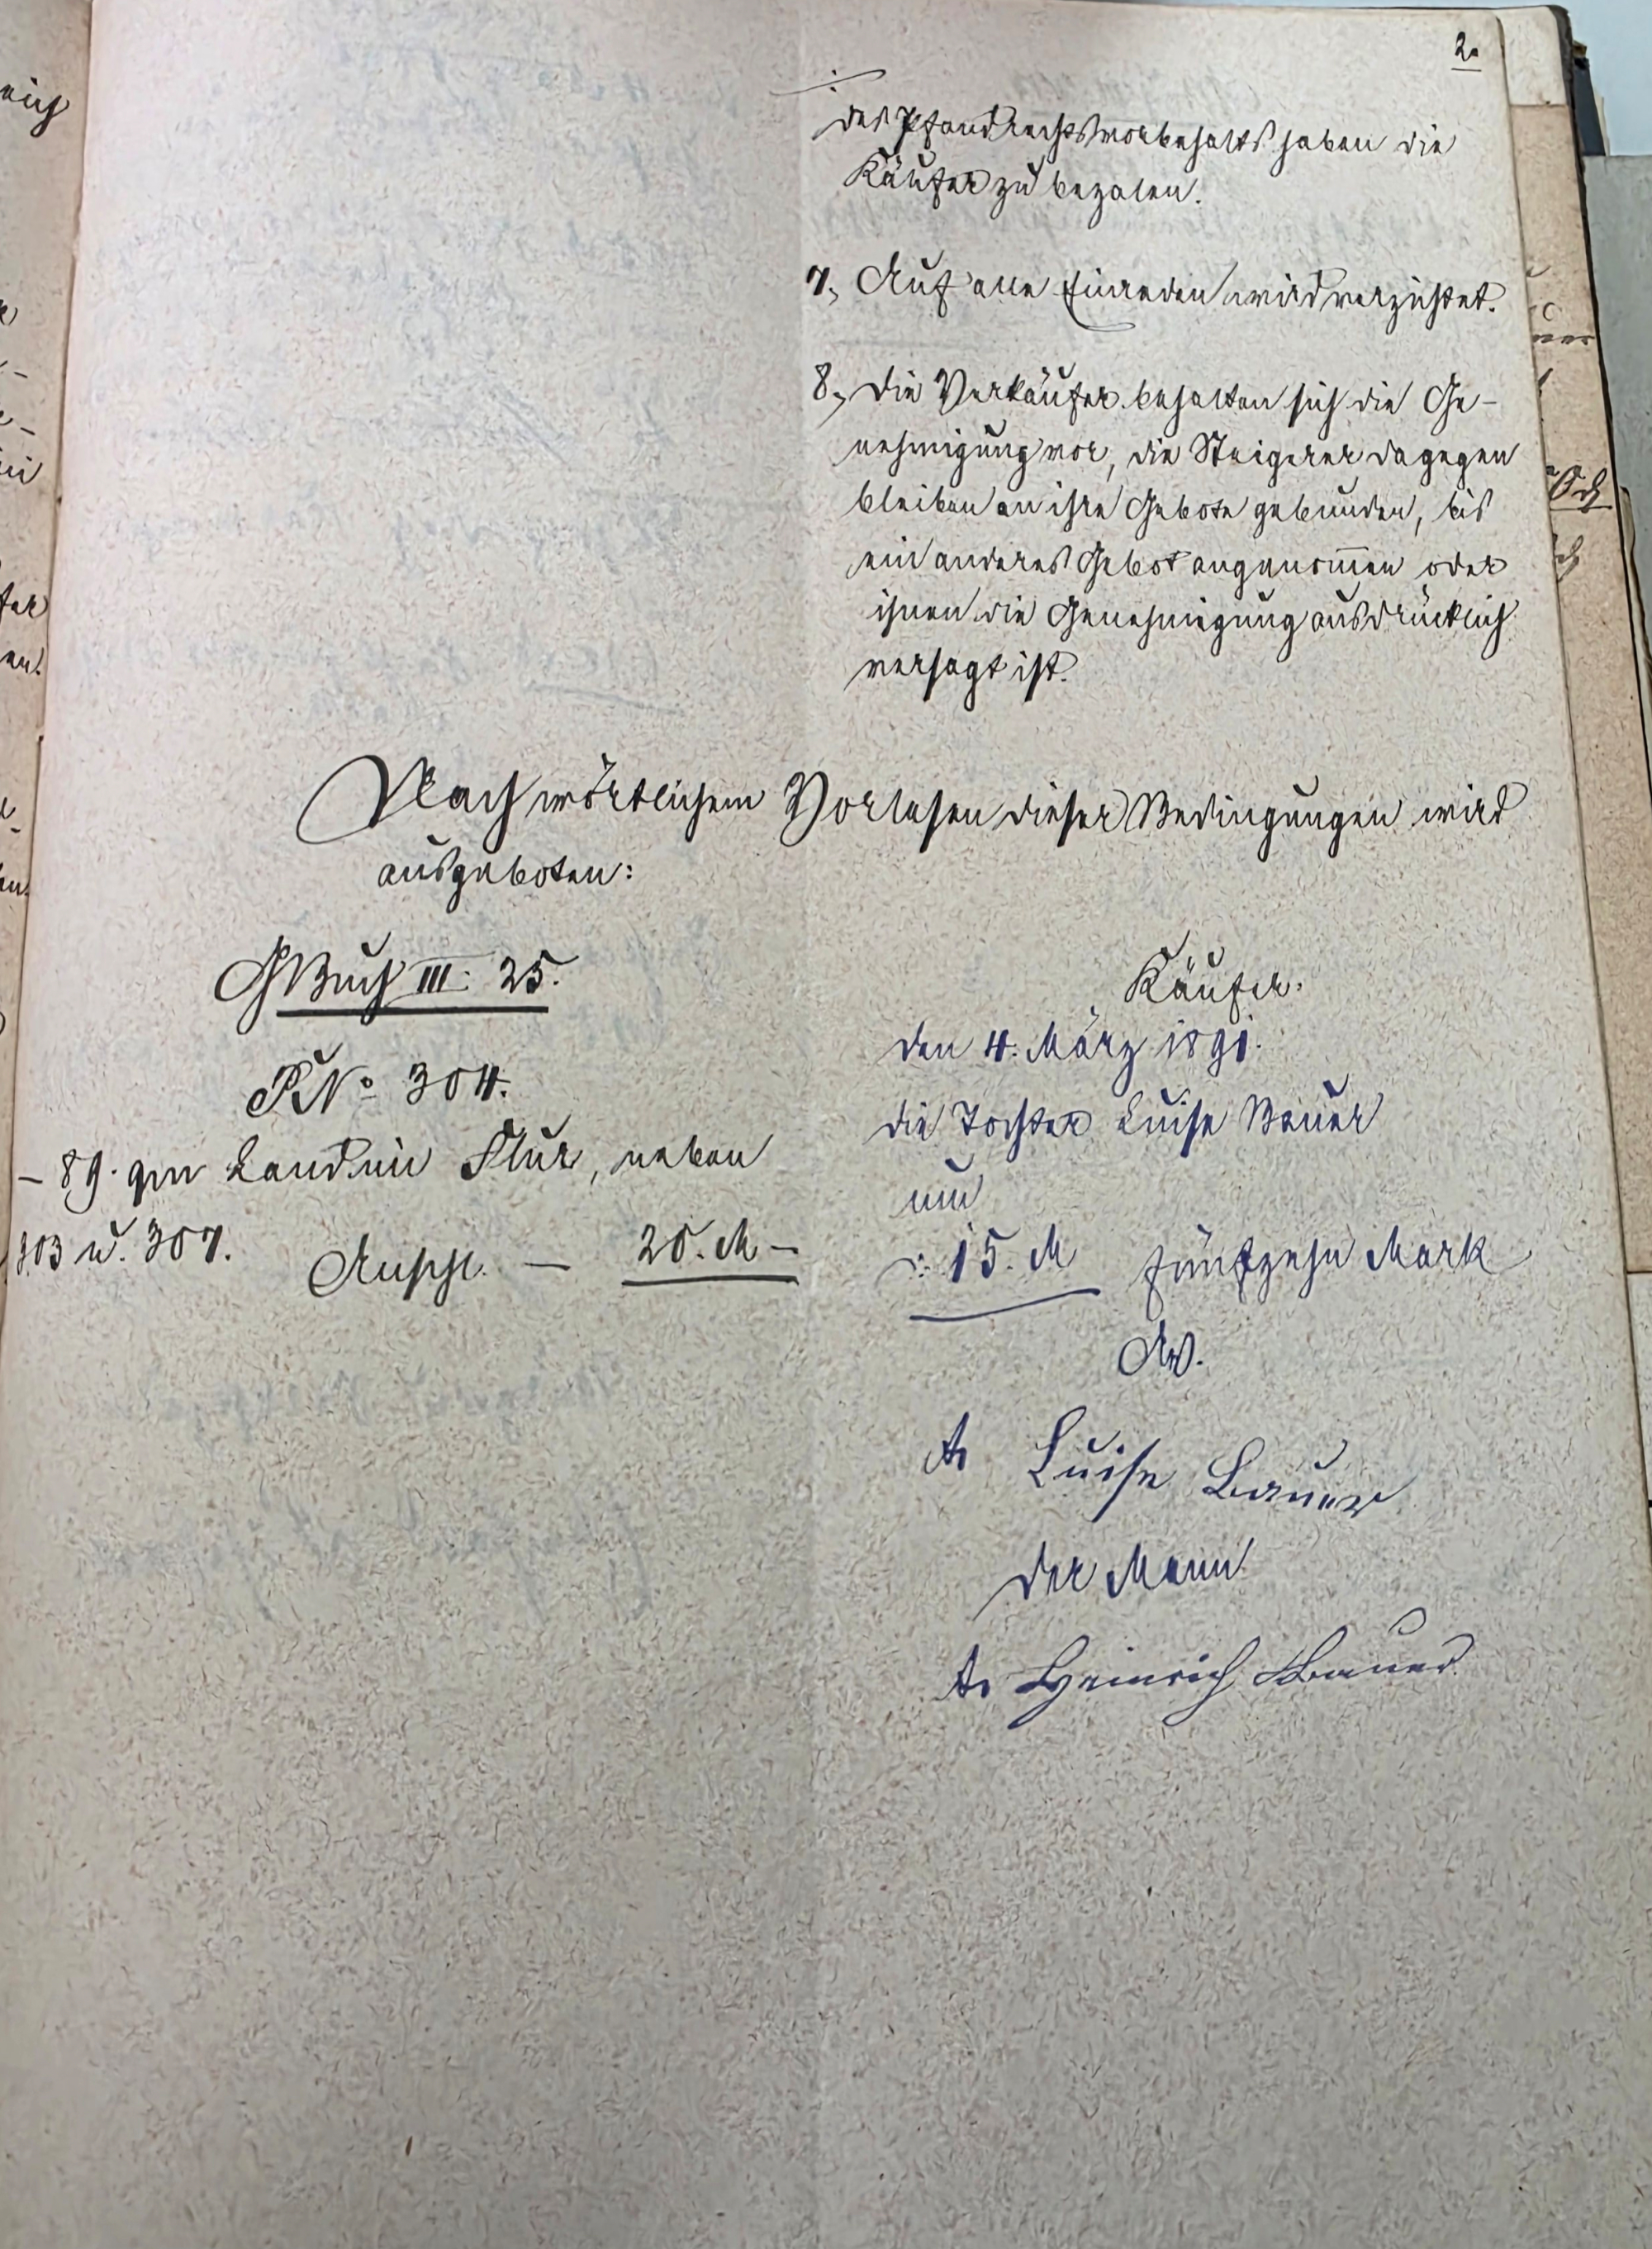 2.
des Pfandrechtsvorbehalts haben die
Käufer zu bezalen.
7, Auf alle Einreden wird verzichtet.
8, Die Verkäufer behalten sich die Ge-
nehmigung vor, die Steigerer dagegen
bleiben an ihre Gebote gebunden, bis
ein anderes Gebot angenom̅en oder
ihnen die Genehmigung ausdrücklich
versagt ist.
Nach wörtlichem Vorlesen dieser Bedingungen wird
ausgeboten:
GBuch III. 25.
PNo 304.
- 89. qm Land im Flur, neben
303 u. 307.
Anschl. — 20. M -
Käufer.
den 4. März 1891.
die Tochter Luise Bauer
um
15. M fünfzehn Mark
Luise Bauer
der Mann
Heinrich Bauer